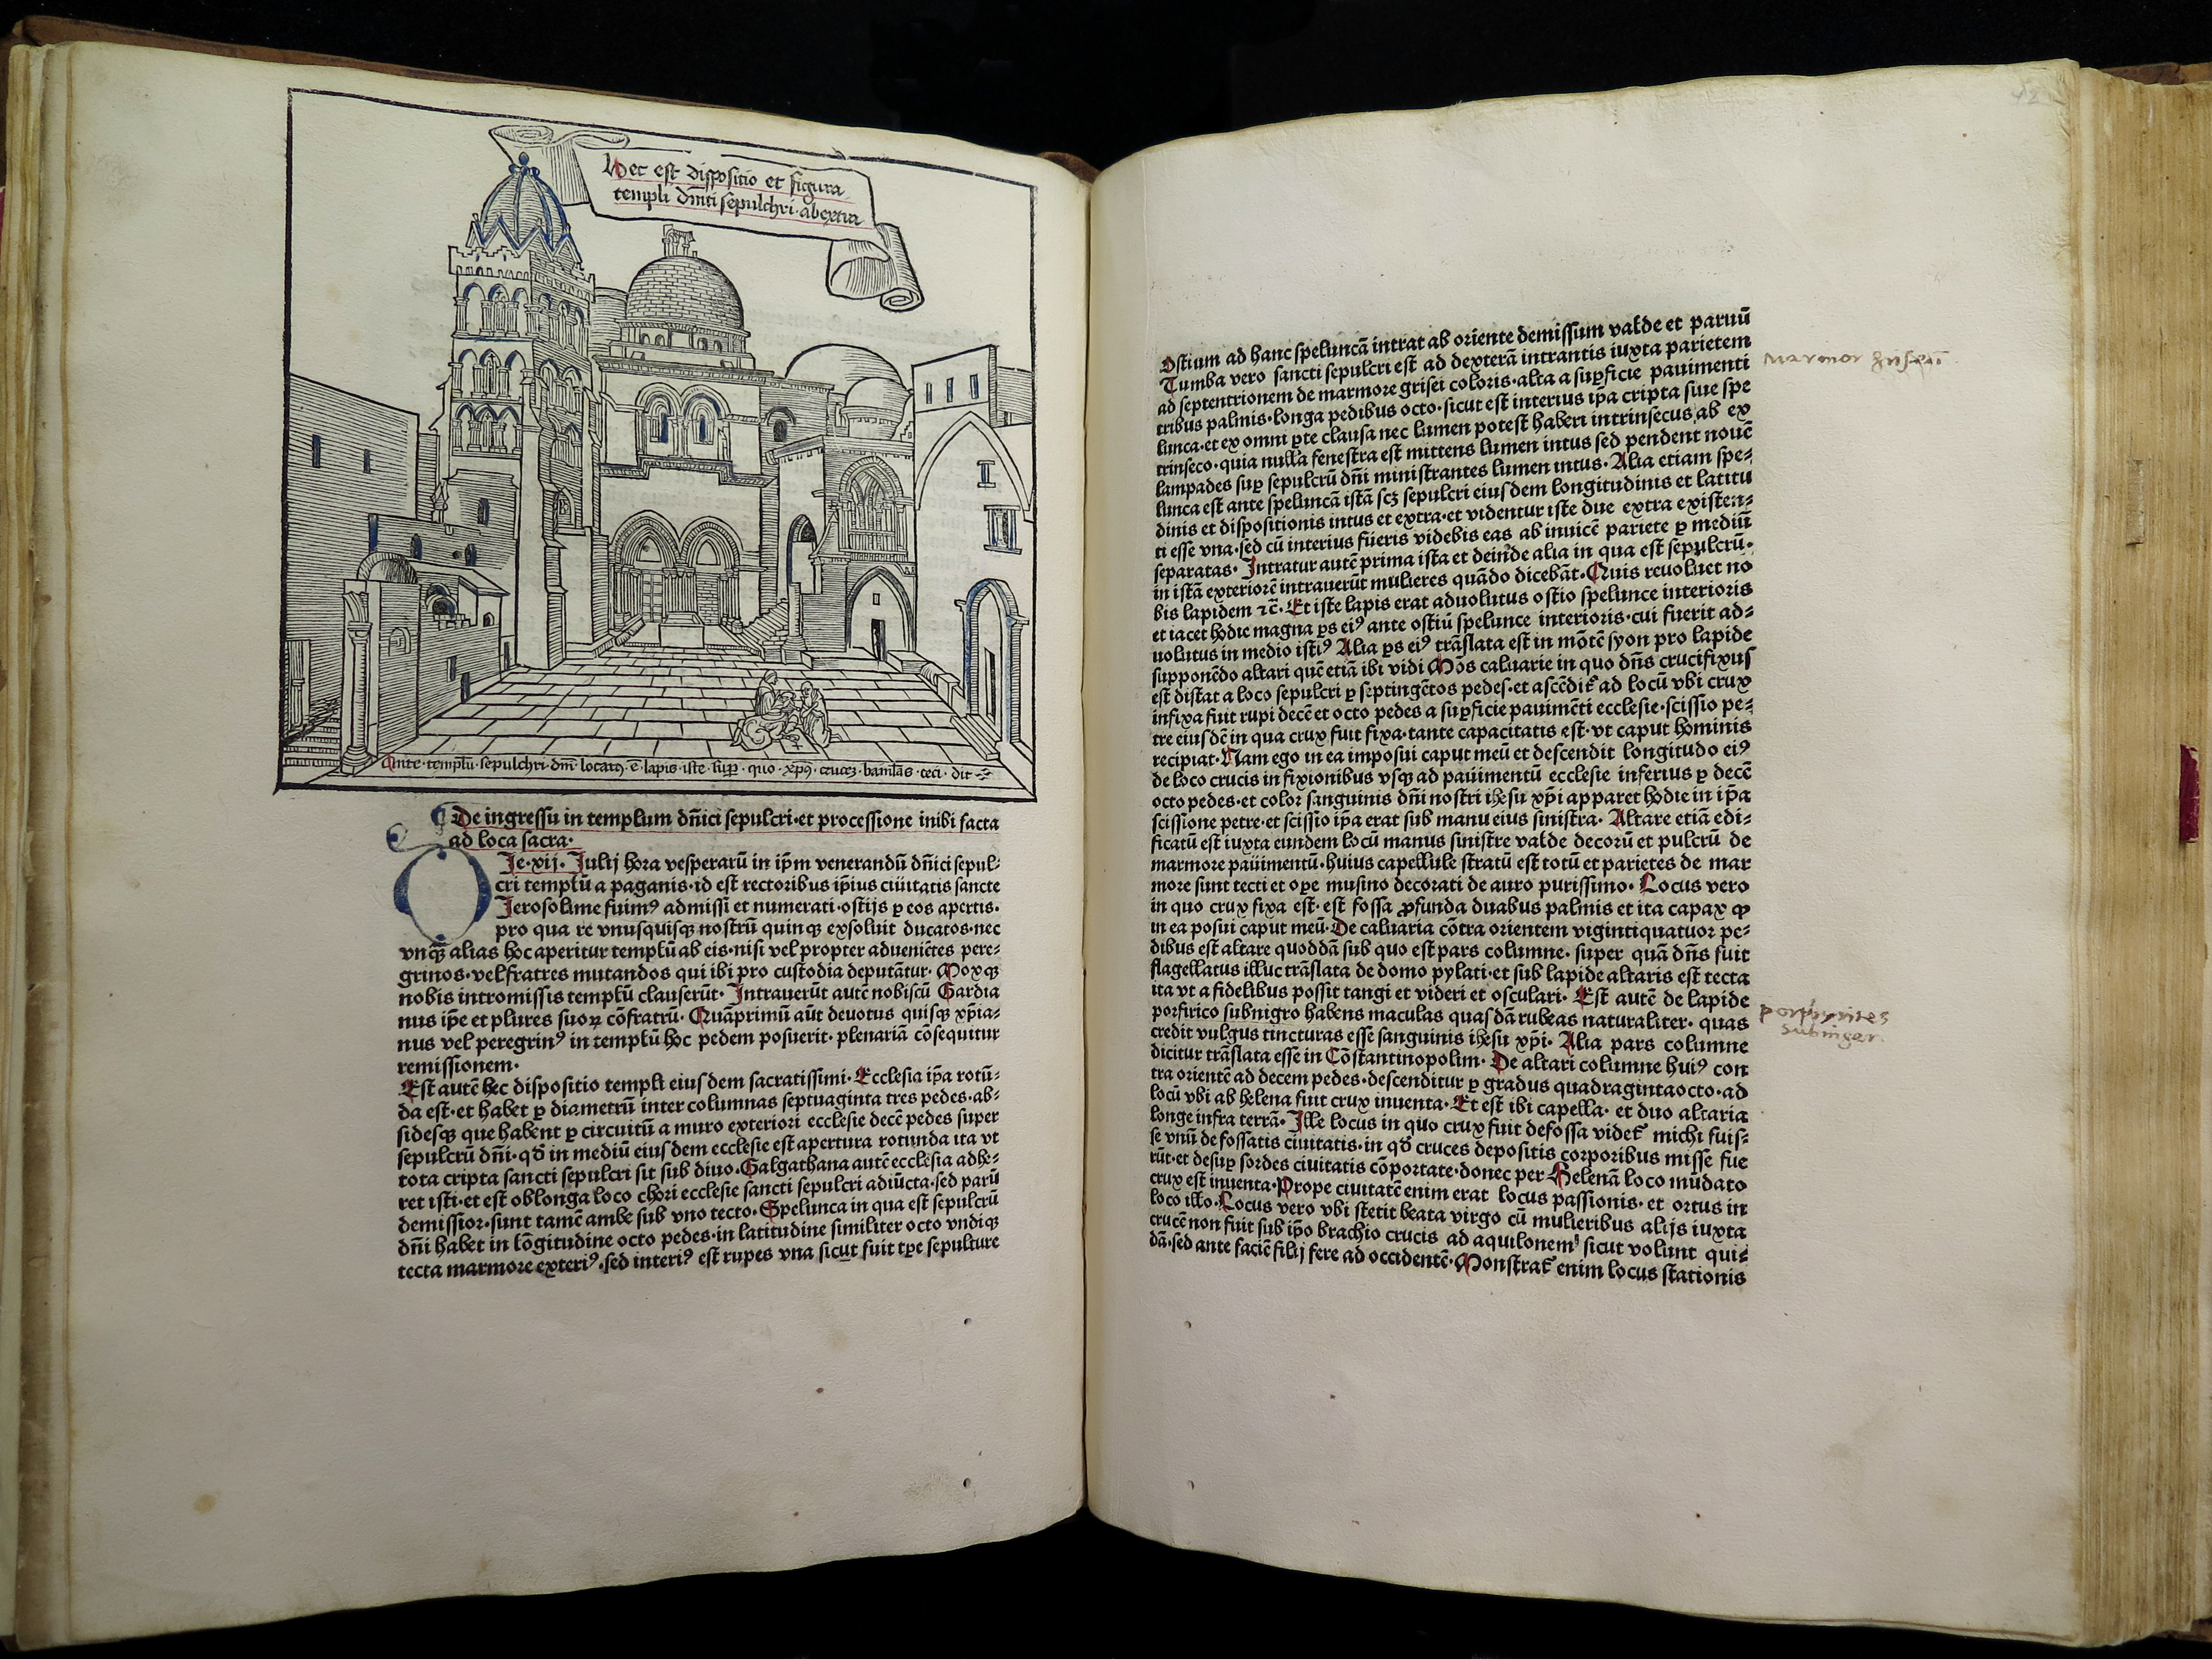 Hec est dispositio et figura
templi dnīci sepulchri ab extra
Ante templū sepulchri dnī locatꝰ ē lapis iste sup quo xp̄s cruceꝫ
De ingressu in templum dn̄ici sepulcri·et processione inibi facta
ad loca sacra·
Ie·xij·Iulij hora vesperarū in ip̄m venerandū dn̄ici sepul-
cri templū a paganis·id est rectoribus ip̄ius ciuitatis sancte
Ierosolime fuimꝰ admissi et numerati·ostijs ꝑ eos apertis·
pro qua re vnusquisqꝫ nostrū quinqꝫ exsoluit ducatos·nec
vnqꝫ̄ alias hoc aperitur templū ab eis·nisi vel propter adueniētes pere-
grinos·vel fratres mutandos qui ibi pro custodia deputātur· Moxqꝫ
nobis intromissis templū clauserūt· Intrauerūt autē nobiscū Gardia
nus ip̄e et plures suoꝝ cōfratrū· Quāprimū aūt deuotus quisqꝫ xp̄ia-
nus vel peregrinꝰ in templū hoc pedem posuerit·plenariā cōsequitur
remissionem·
Est autē hec dispositio templi eiusdem sacratissimi· Ecclesia ip̄a rotū-
da est·et habet ꝑ diametrū inter columnas septuaginta tres pedes·ab-
sidesqꝫ que habent ꝑ circuitū a muro exteriori ecclesie decē pedes super
sepulcrū dn̄i·qđ in mediū eiusdem ecclesie est apertura rotunda ita vt
tota cripta sancti sepulcri sit sub diuo·Galgathana autē ecclesia adhe-
ret isti·et est oblonga loco chori ecclesie sancti sepulcri adiūcta·sed parū
demissior·sunt tamē ambe sub vno tecto· Spelunca in qua est sepulcrū
dn̄i habet in lōgitudine octo pedes·in latitudine similiter octo vndiqꝫ
tecta marmore exteriꝰ·sed interiꝰ est rupes vna sicut fuit tꝑe sepulture
Ostium ad hanc speluncā intrat ab oriente demissum valde et paruū
Tumba vero sancti sepulcri est ad dexterā intrantis iuxta parietem
ad septentrionem de marmore grisei coloris·alta a suꝑficie pauimenti
tribus palmis·longa pedibus octo·sicut est interius ip̄a cripta siue spe
lunca·et ex omni ꝑte clausa nec lumen potest haberi intrinsecus ab ex
trinseco·quia nulla fenestra est mittens lumen intus sed pendent nouē
lampades suꝑ sepulcrū dn̄i ministrantes lumen intus· Alia etiam spe-
lunca est ante speluncā istā scꝫ sepulcri eiusdem longitudinis et latitu
dinis et dispositionis intus et extra·et videntur iste due extra existen-
ti esse vna·sed cū interius fueris videbis eas ab inuicē pariete ꝑ mediū
separatas· Intratur autē prima ista et deinde alia in qua est sepulcrū·
in istā exteriorē intrauerūt mulieres quādo dicebāt·Quis reuoluet no
bis lapidem ⁊c̄·Et iste lapis erat aduolutus ostio spelunce interioris
et iacet hodie magna ꝑs eiꝰ ante ostiū spelunce interioris·cui fuerit ad-
uolutus in medio istiꝰ Alia ꝑs eiꝰ trāslata est in mōtē syon pro lapide
supponēdo altari quē etiā ibi vidi Mōs caluarie in quo dn̄s crucifixus
est distat a loco sepulcri ꝑ septingētos pedes·et ascēdit̄ ad locū vbi crux
infixa fuit rupi decē et octo pedes a suꝑficie pauimēti ecclesie·scissio pe-
tre eiusdē in qua crux fuit fixa·tante capacitatis est·vt caput hominis
recipiat·Nam ego in ea imposui caput meū et descendit longitudo eiꝰ
de loco crucis in fixionibus vsqꝫ ad pauimentū ecclesie inferius ꝑ decē
octo pedes·et color sanguinis dn̄i nostri ihesu xp̄i apparet hodie in ip̄a
scissione petre·et scissio ip̄a erat sub manu eius sinistra· Altare etiā edi-
ficatū est iuxta eundem locū manus sinistre valde decorū et pulcrū de
marmore pauimentū·huius capellule stratū est totū et parietes de mar
more sunt tecti et oꝑe musino decorati de auro purissimo· Locus vero
in quo crux fixa est·est fossa ꝓfunda duabus palmis et ita capax ꝙ
in ea posui caput meū·De caluaria cōtra orientem vigintiquatuor pe-
dibus est altare quoddā sub quo est pars columne·super quā dn̄s fuit
flagellatus illuc trāslata de domo pylati·et sub lapide altaris est tecta
ita vt a fidelibus possit tangi et videri et osculari· Est autē de lapide
porfirico subnigro habens maculas quasdā rubeas naturaliter·quas
credit vulgus tincturas esse sanguinis ihesu xp̄i· Alia pars columne
dicitur trāslata esse in Cōstantinopolim· De altari columne huiꝰ con
tra orientē ad decem pedes·descenditur ꝑ gradus quadragintaocto·ad
locū vbi ab helena fuit crux inuenta·Et est ibi capella·et duo altaria
longe infra terrā· Ille locus in quo crux fuit defossa videt̄ michi fuis-
se vnū de fossatis ciuitatis·in qđ cruces depositis corporibus misse fue
rūt·et desuꝑ sordes ciuitatis cōportate·donec per Helenā loco mūdato
crux est inuenta·Prope ciuitatē enim erat locus passionis·et ortus in
loco illo·Locus vero vbi stetit beata virgo cū mulieribus alijs iuxta
crucē non fuit sub ip̄o brachio crucis ad aquilonem sicut volunt qui-
dā·sed ante faciē filij fere ad occidentē·Monstrat̄ enim locus stationis
Marmor
porphyrites
subniger